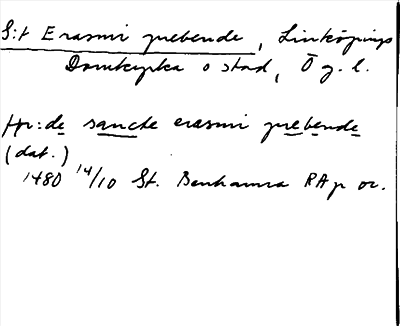 S:t Erasmi prebende, Linköpings
Domkyrka o stad, Ög. l.
Hp: de sancte erasmi prebende
(dat.)
1480 14/10 St. Benhamra RAp or.